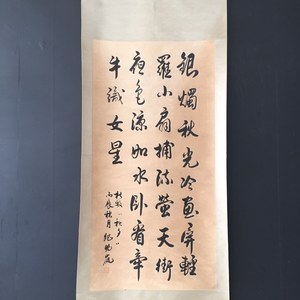 銀燭秋光冷画屏輕
羅小扇捕流螢天街
夜色涼如水卧看牽
牛織女星
杜牧"秋夕"
丙辰秋月